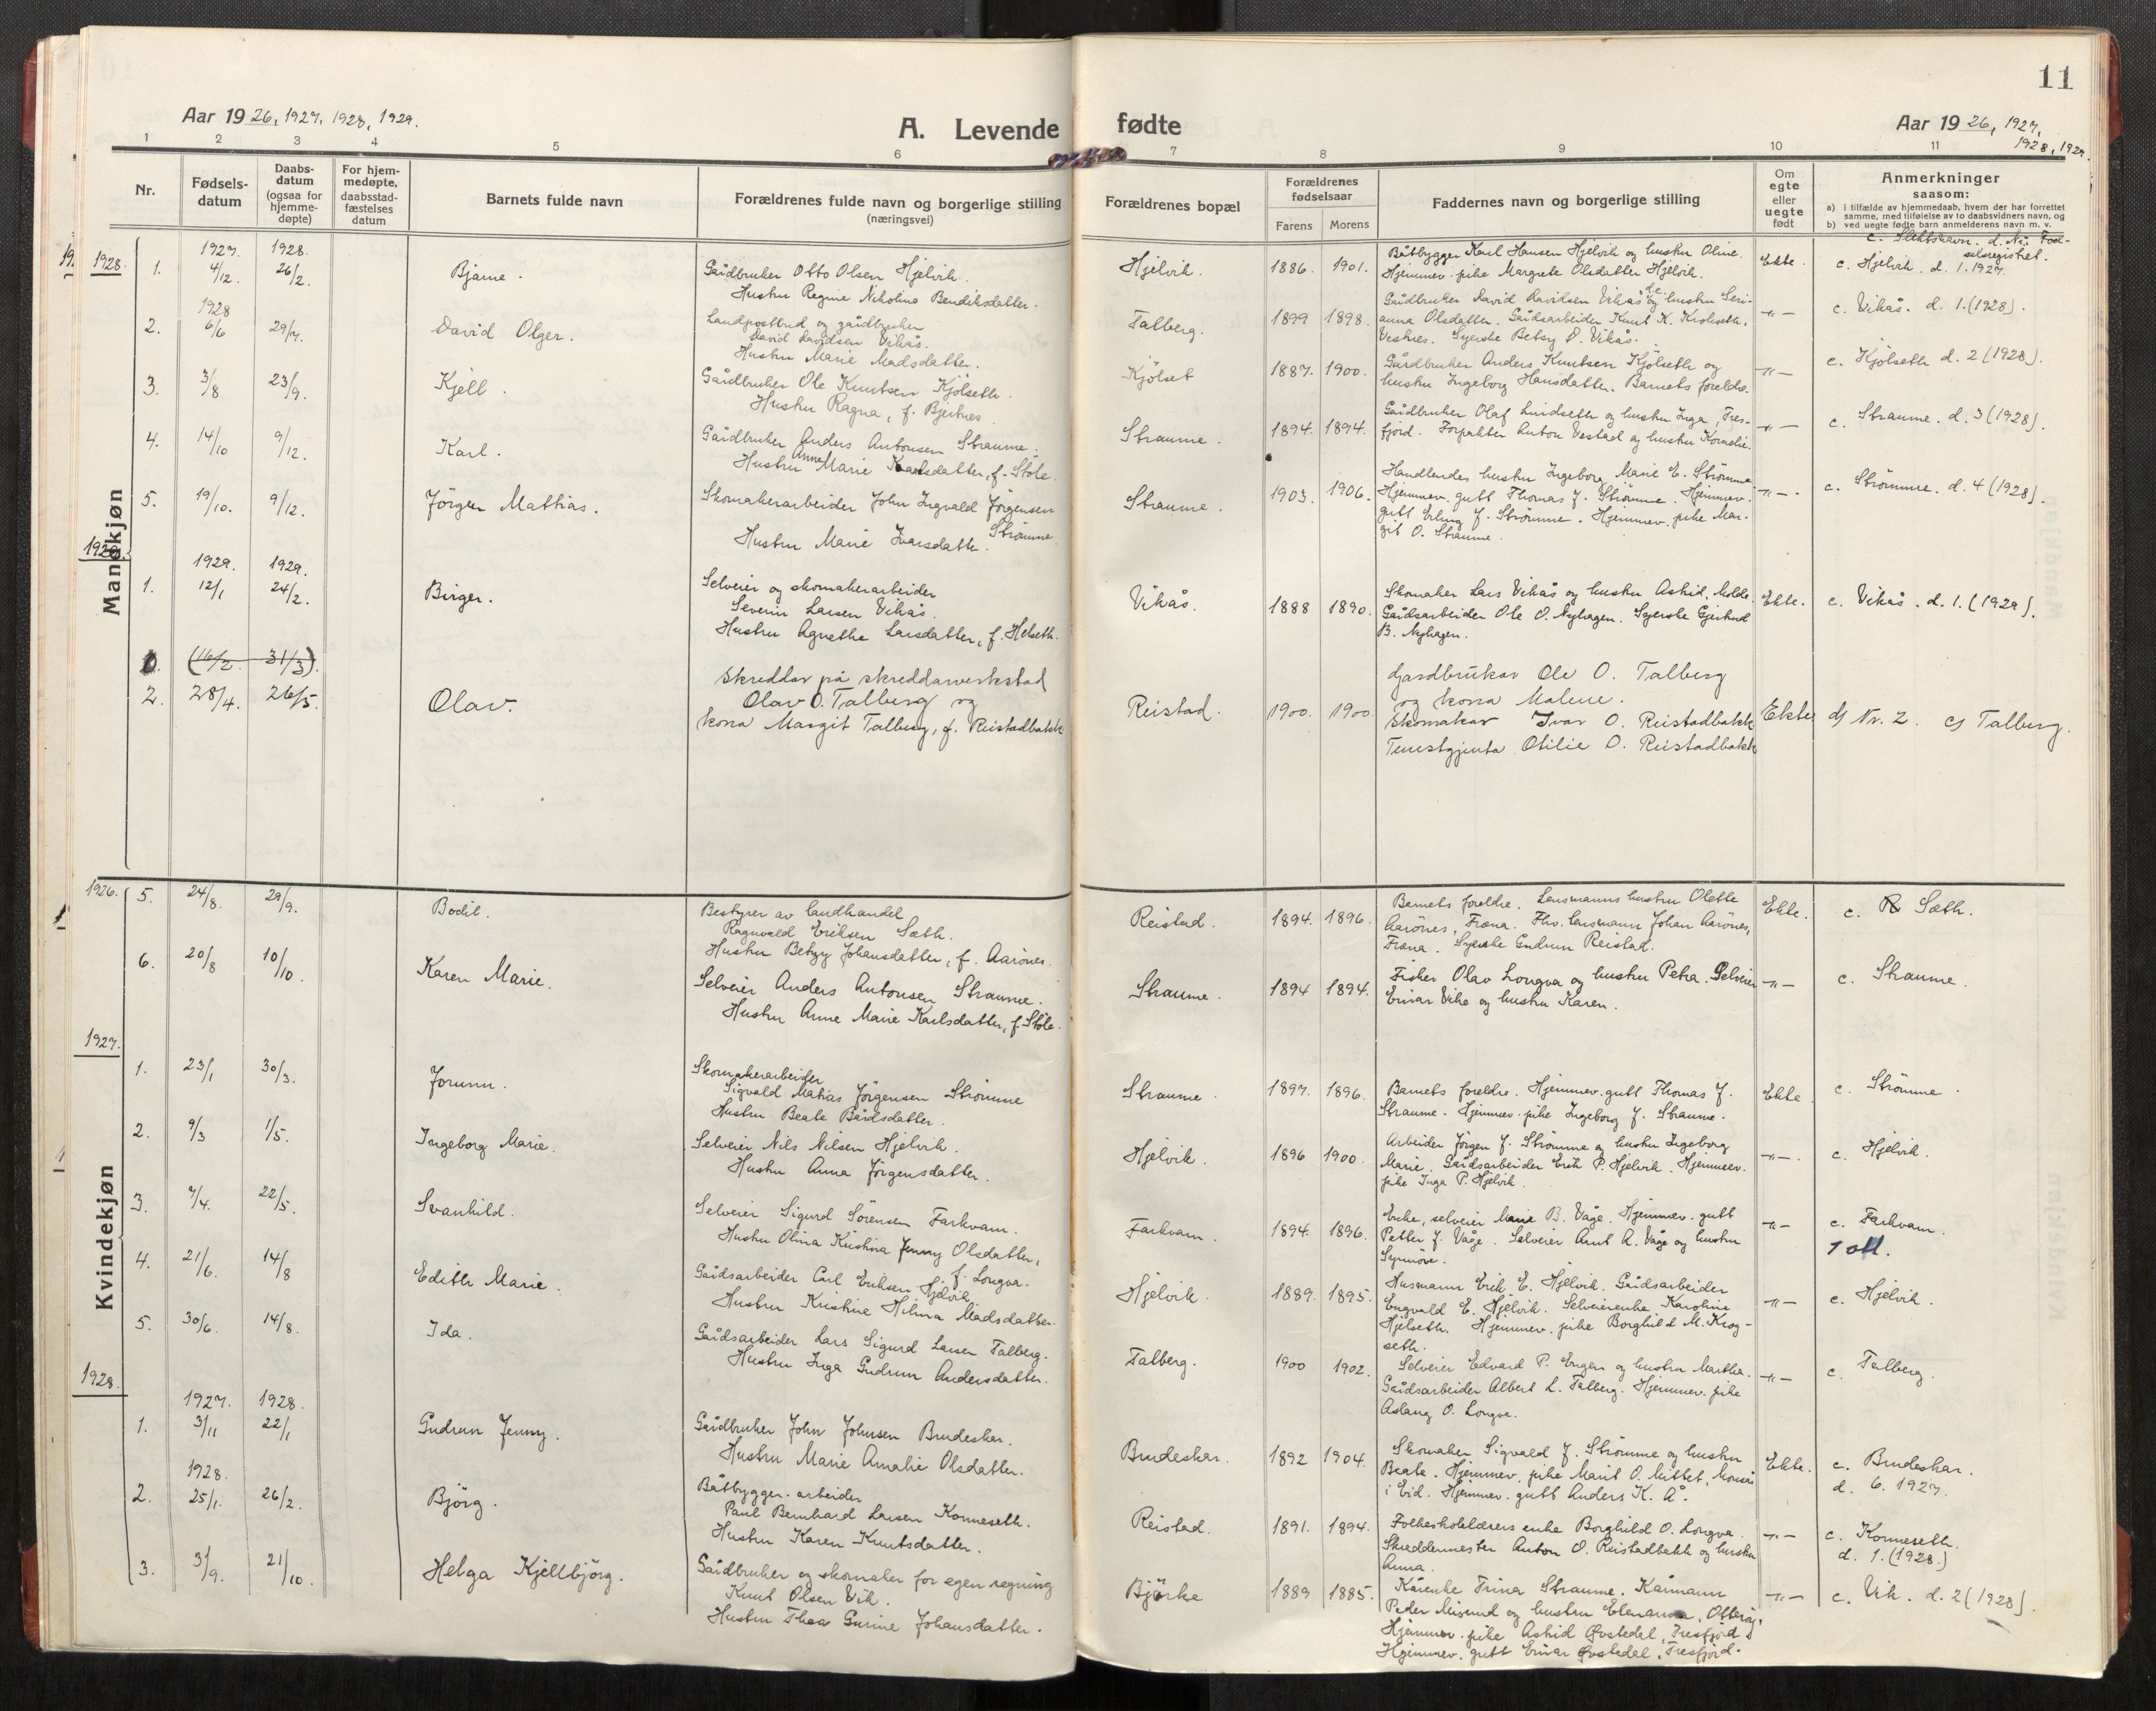 11
Aar 1926, 1927, 1928, 1929.
A. Levende fødte
Aar 1926, 1927,
1928, 1929.
1 2 3 4 5 6 7 8 9 10 11
Nr.
Fødsels-
datum
Daabs-
datum
(ogsaa for
hjemme-
døpte)
For hjem-
medøpte,
daabsstad-
fæstelses
datum
Barnets fulde navn
Forældrenes fulde navn og borgerlige stilling
(næringsvei)
Forældrenes bopæl
Forældrenes
fødselsaar
Farens Morens
Faddernes navn og borgerlige stilling
Om
egte
eller
uegte
født
Anmerkninger
saasom:
a) i tilfælde av hjemmedaab, hvem der har forrettet
samme, med tilføielse av to daabsvidners navn, og
b) ved uegte fødte barn anmelderens navn m. v.
Mandkjøn
1928.
1927. 1928.
1. 4/12. 26/2. Bjarne.
Gårdbruker Otto Olsen Hjelvik.
Hustru Regine Nikoline Bendiksdatter.
Hjelvik. 1886. 1901.
Båtbygger Karl Hansen Hjelvik og hustru Oline.
Hjemmev. pike Margrete Olsdatter Hjelvik.
Ekte.
c. Slektsnavn. d. Nr. Fød-
selsregistret.
c. Hjelvik. d. 1. 1927.
1928
2. 6/6 29/7. David Olger.
Landpostbud og gårdbruker
David Davidsen Vikås.
Hustru Marie Madsdatter.
Talberg. 1899 1898.
Gårdbruker David Davidsen Vikås og hustru Seri-
anna Olsdatter. Gårdsarbeider Knut K. Krokseth,
Vestnes. Syerske Betsy D. Vikås.
-"-
c. Vikås. d. 1. (1928).
3. 3/8 23/9. Kjell.
Gårdbruker Ole Knutsen Kjölseth.
Hustru Ragna, f. Bjertnes
Kjölset 1887. 1900.
Gårdbruker Anders Knutsen Kjölseth og
hustru Ingeborg Hansdatter. Barnets foreldre.
-"-
c. Kjölseth d. 2 (1928).
4. 14/10 9/12. Karl.
Gårdbruker Anders Antonsen Straume.
Hustru Anne Marie Karlsdatter, f. Støle.
Straume. 1894. 1894.
Gårdbruker Olaf Lindseth og hustru Inga, Tres-
fjord. Forpakter Anton Vestad og hustru Kornelie.
-"-
c. Straume. d. 3 (1928).
5. 19/10. 9/12. Jörgen Mathias.
Skomakerarbeider John Ingvald Jörgensen
Strømme.
Hustru Marie Ivarsdatter.
Straume. 1903. 1906.
Handlendes hustru Ingeborg Marie E. Strömme
Hjemmev. gutt Thomas J. Strömme. Hjemmev.
gutt Erling J. Strömme. Hjemmev. pike Mar-
git O. Straume.
-"-
c. Strömme. d. 4 (1928).
1929.
1929. 1929.
1. 12/1 24/2. Birger.
Selveier og skomakerarbeider
Severin Larsen Vikås.
Hustru Agnethe Larsdatter, f. Helseth.
Vikås. 1888 1890.
Skomaker Lars Vikås og hustru Astrid, Molde.
Gårdsarbeider Ole O. Nyhagen. Syerske Gjertrud
B. Nyhagen.
Ekte.
c. Vikås. d. 1. (1929).
(16/2 31/3).
2. 28/4. 26/5. Olav.
Skreddar på skreddarverkstad
Olav O. Talberg og
kona Margit Talberg, f. Reistadbakk
Reistad. 1900. 1900
Gardbrukar Ole O. Talberg
og kona Malene.
Skomakar Ivar O. Reistadbakk
Tenestgjenta Otilie O. Reistadbakk
Ekte
d) Nr. 2 c) Talberg.
Kvindekjøn
1926.
5. 24/8. 29/9. Bodil.
Bestyrer av landhandel
Ragnvald Eriksen Sæth.
Hustru Betzy Johansdatter, f. Aarönes.
Reistad. 1894. 1896.
Barnets foreldre. Lensmanns hustru Olette
Aarönes, Fræna. Fhv. lensmann Johan Aarönes,
Fræna. Syerske Gudrun Reistad.
Ekte.
c. Sæth.
6. 20/8 10/10. Karen Marie.
Selveier Anders Antonsen Straume.
Hustru Anne Marie Karlsdatter, f. Støle.
Straume. 1894 1894.
Fisker Olav Longva og hustru Petra. Selveier
Einar Vike og hustru Karen.
-"-
c. Straume.
1927.
1. 23/1 30/3. Jorunn.
Skomakerarbeider
Sigvald Matias Jörgensen Strömme
Hustru Beate Bårdsdatter.
Straume. 1897. 1896.
Barnets foreldre. Hjemmev. gutt Thomas J.
Straume. Hjemmev. pike Ingeborg J. Straume.
Ekte
c. Strömme.
2. 9/3 1/5. Ingeborg Marie.
Selveier Nils Nilsen Hjelvik.
Hustru Anna Jörgensdatter.
Hjelvik. 1896 1900.
Arbeider Jörgen J. Strömme og hustru Ingeborg
Marie. Gårdsarbeider Erik P. Hjelvik. Hjemmev.
pike Inga P. Hjelvik.
-"-
c. Hjelvik.
3. 7/4. 22/5. Svanhild.
Selveier Sigurd Sørensen Farkvam.
Hustru Olina Kristina Jenny Olsdatter,
f. Longva.
Farkvam. 1894. 1896.
Enke, selveier Marie B. Våge. Hjemmev. gutt
Petter J. Våge. Selveier Arnt A. Våge og hustru
Synnöve.
-"-
c. Farkvam.
4. 21/6. 14/8 Edith Marie.
Gårdsarbeider Carl Eriksen Hjelvik
Hustru Kristine Hilma Madsdatter.
Hjelvik. 1889. 1895.
Husmann Erik E. Hjelvik. Gårdsarbeider
Engvald E. Hjelvik. Selveierenke Karoline
Hjelseth. Hjemmev. pike Borghild M. Krog-
seth.
-"-
c. Hjelvik.
5. 30/6. 14/8. Ida.
Gårdsarbeider Lars Sigurd Larsen Talberg.
Hustru Inga Gudrun Andersdatter.
Talberg. 1900 1902.
Selveier Edvard P. Engen og hustru Martha.
Gårdsarbeider Albert L. Talberg. Hjemmev. pike
Aslaug O. Longva.
-"-
c. Talberg.
1928.
1927. 1928.
1. 3/11 22/1 Gudrun Jenny.
Gårdbruker John Johnsen Brudeskar.
Hustru Marie Amalie Olsdatter.
Brudeskar. 1892 1904.
Skomaker Sigvald J. Strömme og hustru
Beate. Hjemmev. pike Marit O. Mittet,
i Eid. Hjemmev. gutt Anders K. Å.
Ekte.
c. Brudeskar.
d. 6. 1927.
1928.
2. 25/1. 26/2. Björg.
Båtbygger-arbeider
Paul Bernhard Larsen Konneseth.
Hustru Karen Knutsdatter.
Reistad. 1891. 1894.
Folkeskolelærers enke Borghild O. Longva.
Skreddermester Anton O. Reistadbakk og hustru
Anna.
-"-
c. Konneseth.
d. 1. (1928.)
3. 3/9. 21/10. Helga Kjellbjörg.
Gårdbruker og skomaker for egen regning
Knut Olsen Vik.
Hustru Thea Gurine Johansdatter.
Bjørke 1889 1885.
Kårenke Trina Straume. Kårmann
Peder Misund og hustru Elenanna, Otteröy.
Hjemmev. pike Astrid Øvstedal, Tresfjord.
Hjemmev. gutt Einar Øvstedal, Tresfjord.
-"-
c. Vik. d. 2 (1928).